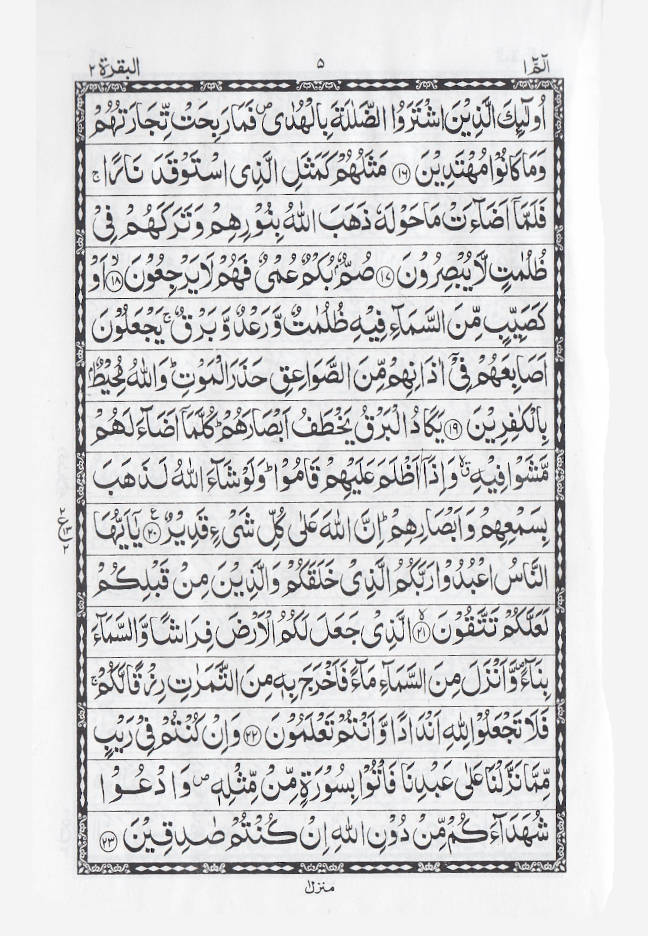 الٓمّٓ ۱ ۵ البقرة ۲
اُولٰٓئِكَ الَّذِیْنَ اشْتَرَوُا الضَّلٰلَةَ بِالْهُدٰی ۪ فَمَا رَبِحَتْ تِّجَارَتُهُمْ
وَمَا كَانُوْا مُهْتَدِیْنَ ﴿۱۶﴾ مَثَلُهُمْ كَمَثَلِ الَّذِی اسْتَوْقَدَ نَارًا ۚ
فَلَمَّآ اَضَآءَتْ مَاحَوْلَهٗ ذَهَبَ اللّٰهُ بِنُوْرِهِمْ وَتَرَكَهُمْ فِیْ
ظُلُمٰتٍ لَّا یُبْصِرُوْنَ ﴿۱۷﴾ صُمٌّۢ بُكْمٌ عُمْیٌ فَهُمْ لَا یَرْجِعُوْنَ ﴿۱۸﴾ۙ اَوْ
كَصَیِّبٍ مِّنَ السَّمَآءِ فِیْهِ ظُلُمٰتٌ وَّرَعْدٌ وَّبَرْقٌ ۚ یَجْعَلُوْنَ
اَصَابِعَهُمْ فِیْۤ اٰذَانِهِمْ مِّنَ الصَّوَاعِقِ حَذَرَ الْمَوْتِ ؕ وَاللّٰهُ مُحِیْطٌۢ
بِالْكٰفِرِیْنَ ﴿۱۹﴾ یَكَادُ الْبَرْقُ یَخْطَفُ اَبْصَارَهُمْ ؕ كُلَّمَآ اَضَآءَ لَهُمْ
مَّشَوْا فِیْهِ ۙۗ وَاِذَآ اَظْلَمَ عَلَیْهِمْ قَامُوْا ؕ وَلَوْ شَآءَ اللّٰهُ لَذَهَبَ
بِسَمْعِهِمْ وَاَبْصَارِهِمْ ؕ اِنَّ اللّٰهَ عَلٰی كُلِّ شَیْءٍ قَدِیْرٌ ﴿۲۰﴾ع یٰۤاَیُّهَا
النَّاسُ اعْبُدُوْا رَبَّكُمُ الَّذِیْ خَلَقَكُمْ وَالَّذِیْنَ مِنْ قَبْلِكُمْ
لَعَلَّكُمْ تَتَّقُوْنَ ﴿۲۱﴾ۙ الَّذِیْ جَعَلَ لَكُمُ الْاَرْضَ فِرَاشًا وَّالسَّمَآءَ
بِنَآءً ۪ وَّاَنْزَلَ مِنَ السَّمَآءِ مَآءً فَاَخْرَجَ بِهٖ مِنَ الثَّمَرٰتِ رِزْقًا لَّكُمْ ۚ
فَلَا تَجْعَلُوْا لِلّٰهِ اَنْدَادًا وَّاَنْتُمْ تَعْلَمُوْنَ ﴿۲۲﴾ وَاِنْ كُنْتُمْ فِیْ رَیْبٍ
مِّمَّا نَزَّلْنَا عَلٰی عَبْدِنَا فَاْتُوْا بِسُوْرَةٍ مِّنْ مِّثْلِهٖ ۪ وَادْعُوْا
شُهَدَآءَكُمْ مِّنْ دُوْنِ اللّٰهِ اِنْ كُنْتُمْ صٰدِقِیْنَ ﴿۲۳﴾
۲
ع ۱۳
۲
منزل ۱